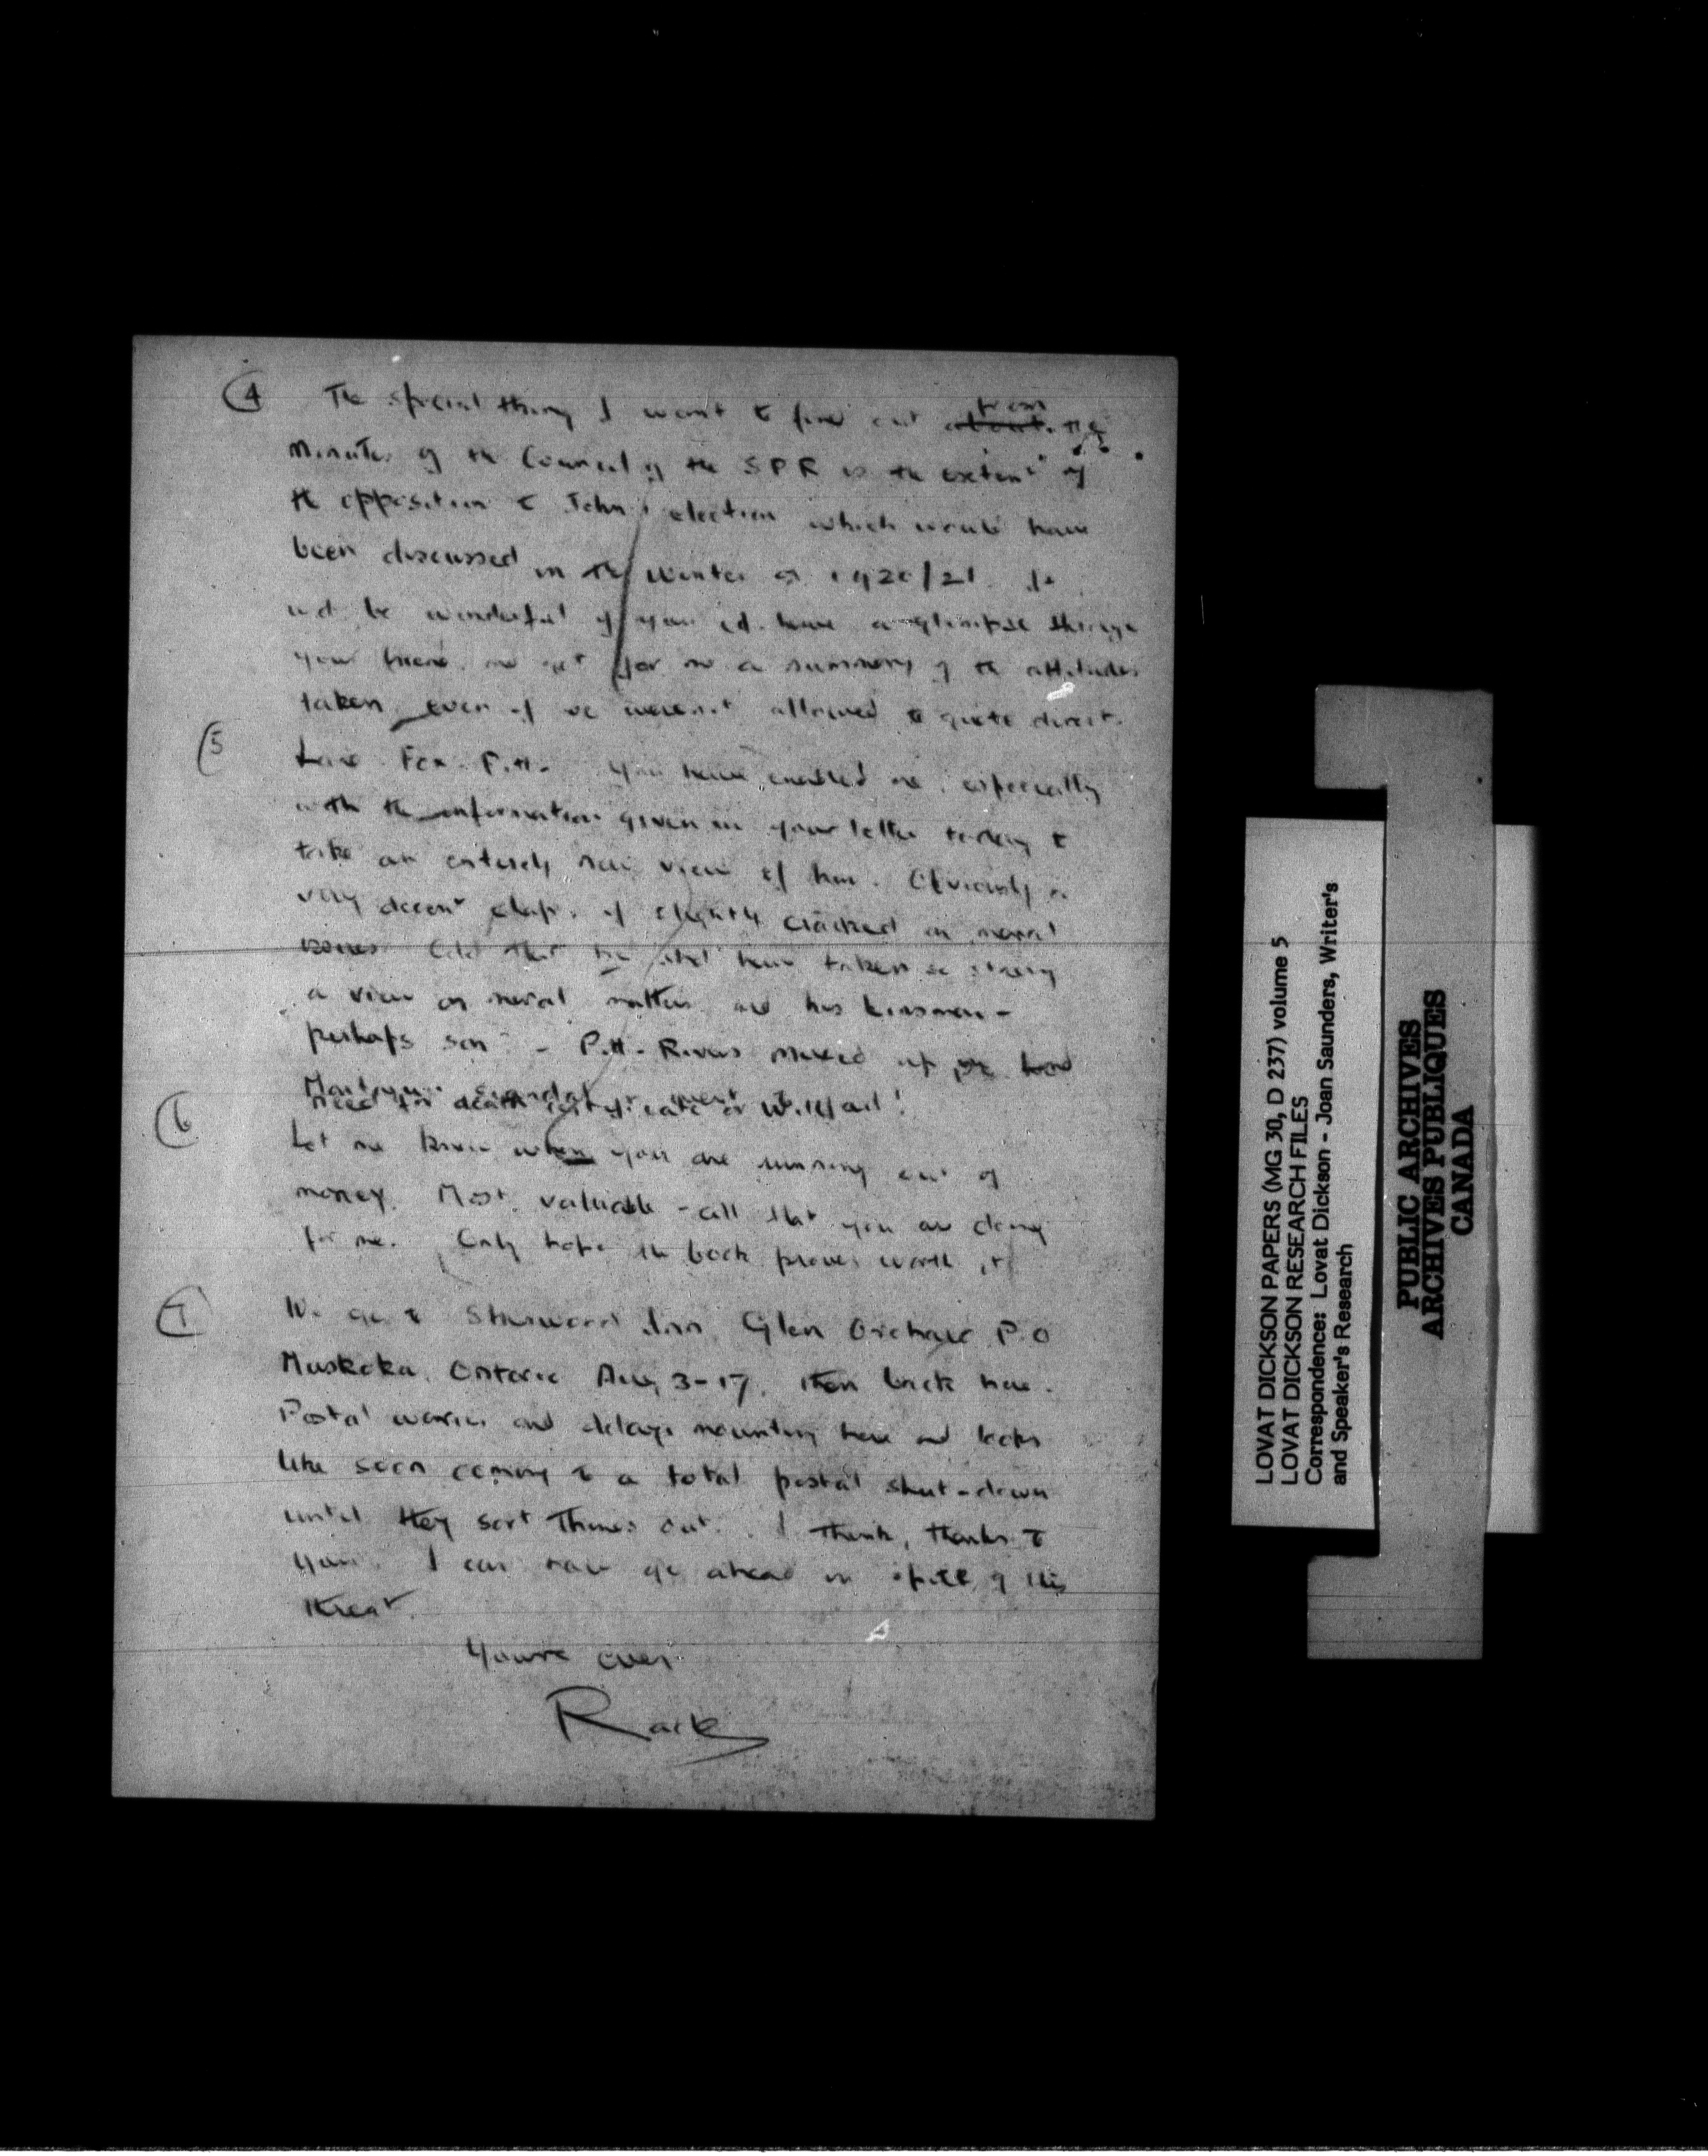 4 The special thing I want to find out about from the
Minutes of the Council of the SPR is the extent of
the opposition to John's election which would have
been discussed in the Winter of 1920/21. It
wd be wonderful if you cd. have a glimpse through
your friend and get for me a summary of the attitudes
taken, even if we weren't allowed to quote direct.
5 Lane Fox-Pitt. You have enabled me, especially
with the information given in your letter today to
take an entirely new view of him. Obviously a
very decent chap, if slightly cracked on moral
issues. Odd that he shd have taken so strong
a view on moral matters and his kinsman -
perhaps son - Pitt-Rivers mixed up in
Montagu scandal
need for death certificate or Will
6 Let me know when you are running out of
money. Most valuable - all that you are doing
for me. Only hope the book proves worth it
7 We go to Sherwood Inn, Glen Orchard P.O
Muskoka, Ontario Aug 3-17, then back here.
Postal worries and delays mounting here and looks
like soon coming to a total postal shut-down
until they sort things out. I think, thanks to
you, I can now go ahead in spite of this
threat.
Yours ever
Rache
LOVAT DICKSON PAPERS (MG 30, D 237) volume 5
LOVAT DICKSON RESEARCH FILES
Correspondence: Lovat Dickson - Joan Saunders, Writer's
and Speaker's Research
PUBLIC ARCHIVES
ARCHIVES PUBLIQUES
CANADA